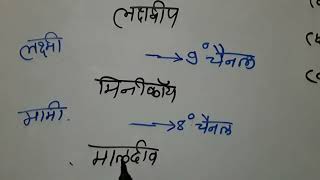 लक्षद्वीप
लक्ष्मी → 9° चैनल
मिनीकॉय
मामी. → 8° चैनल
मालदीव